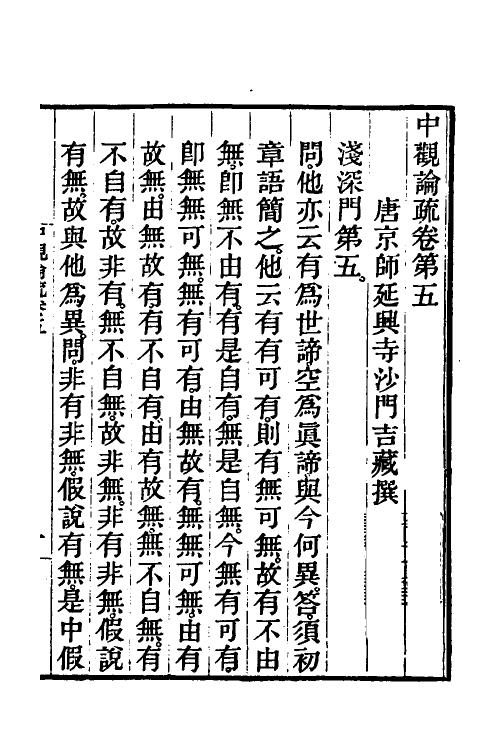 中觀論疏卷第五
唐京師延興寺沙門吉藏撰
淺深門第五。
問。他亦云有爲世諦空爲眞諦與今何異。答。須初
章語簡之。他云有有可有。則有無可無。故有不由
無。卽無不由有。有是自有。無是自無。今無有可有。
卽無無可無。無有可有。由無故有。無無可無。由有
故無。由無故有。有不自有。由有故無。無不自無。有
不自有。故非有。無不自無。故非無。非有非無。假說
有無。故與他爲異。問。非有非無。假說有無。是中假